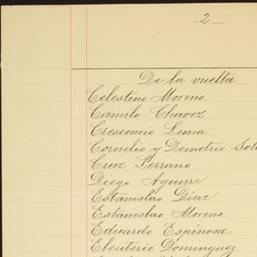 -2-
De la vuelta
Celestino Moreno.
Camilo Chavez
Crescencio Luna
Cornelio y Demetrio
Cruz Serrano
Diego Aguirre
Estanislao Diaz
Estanislao Moreno.
Eduardo Espinosa
Eleuterio Dominguez